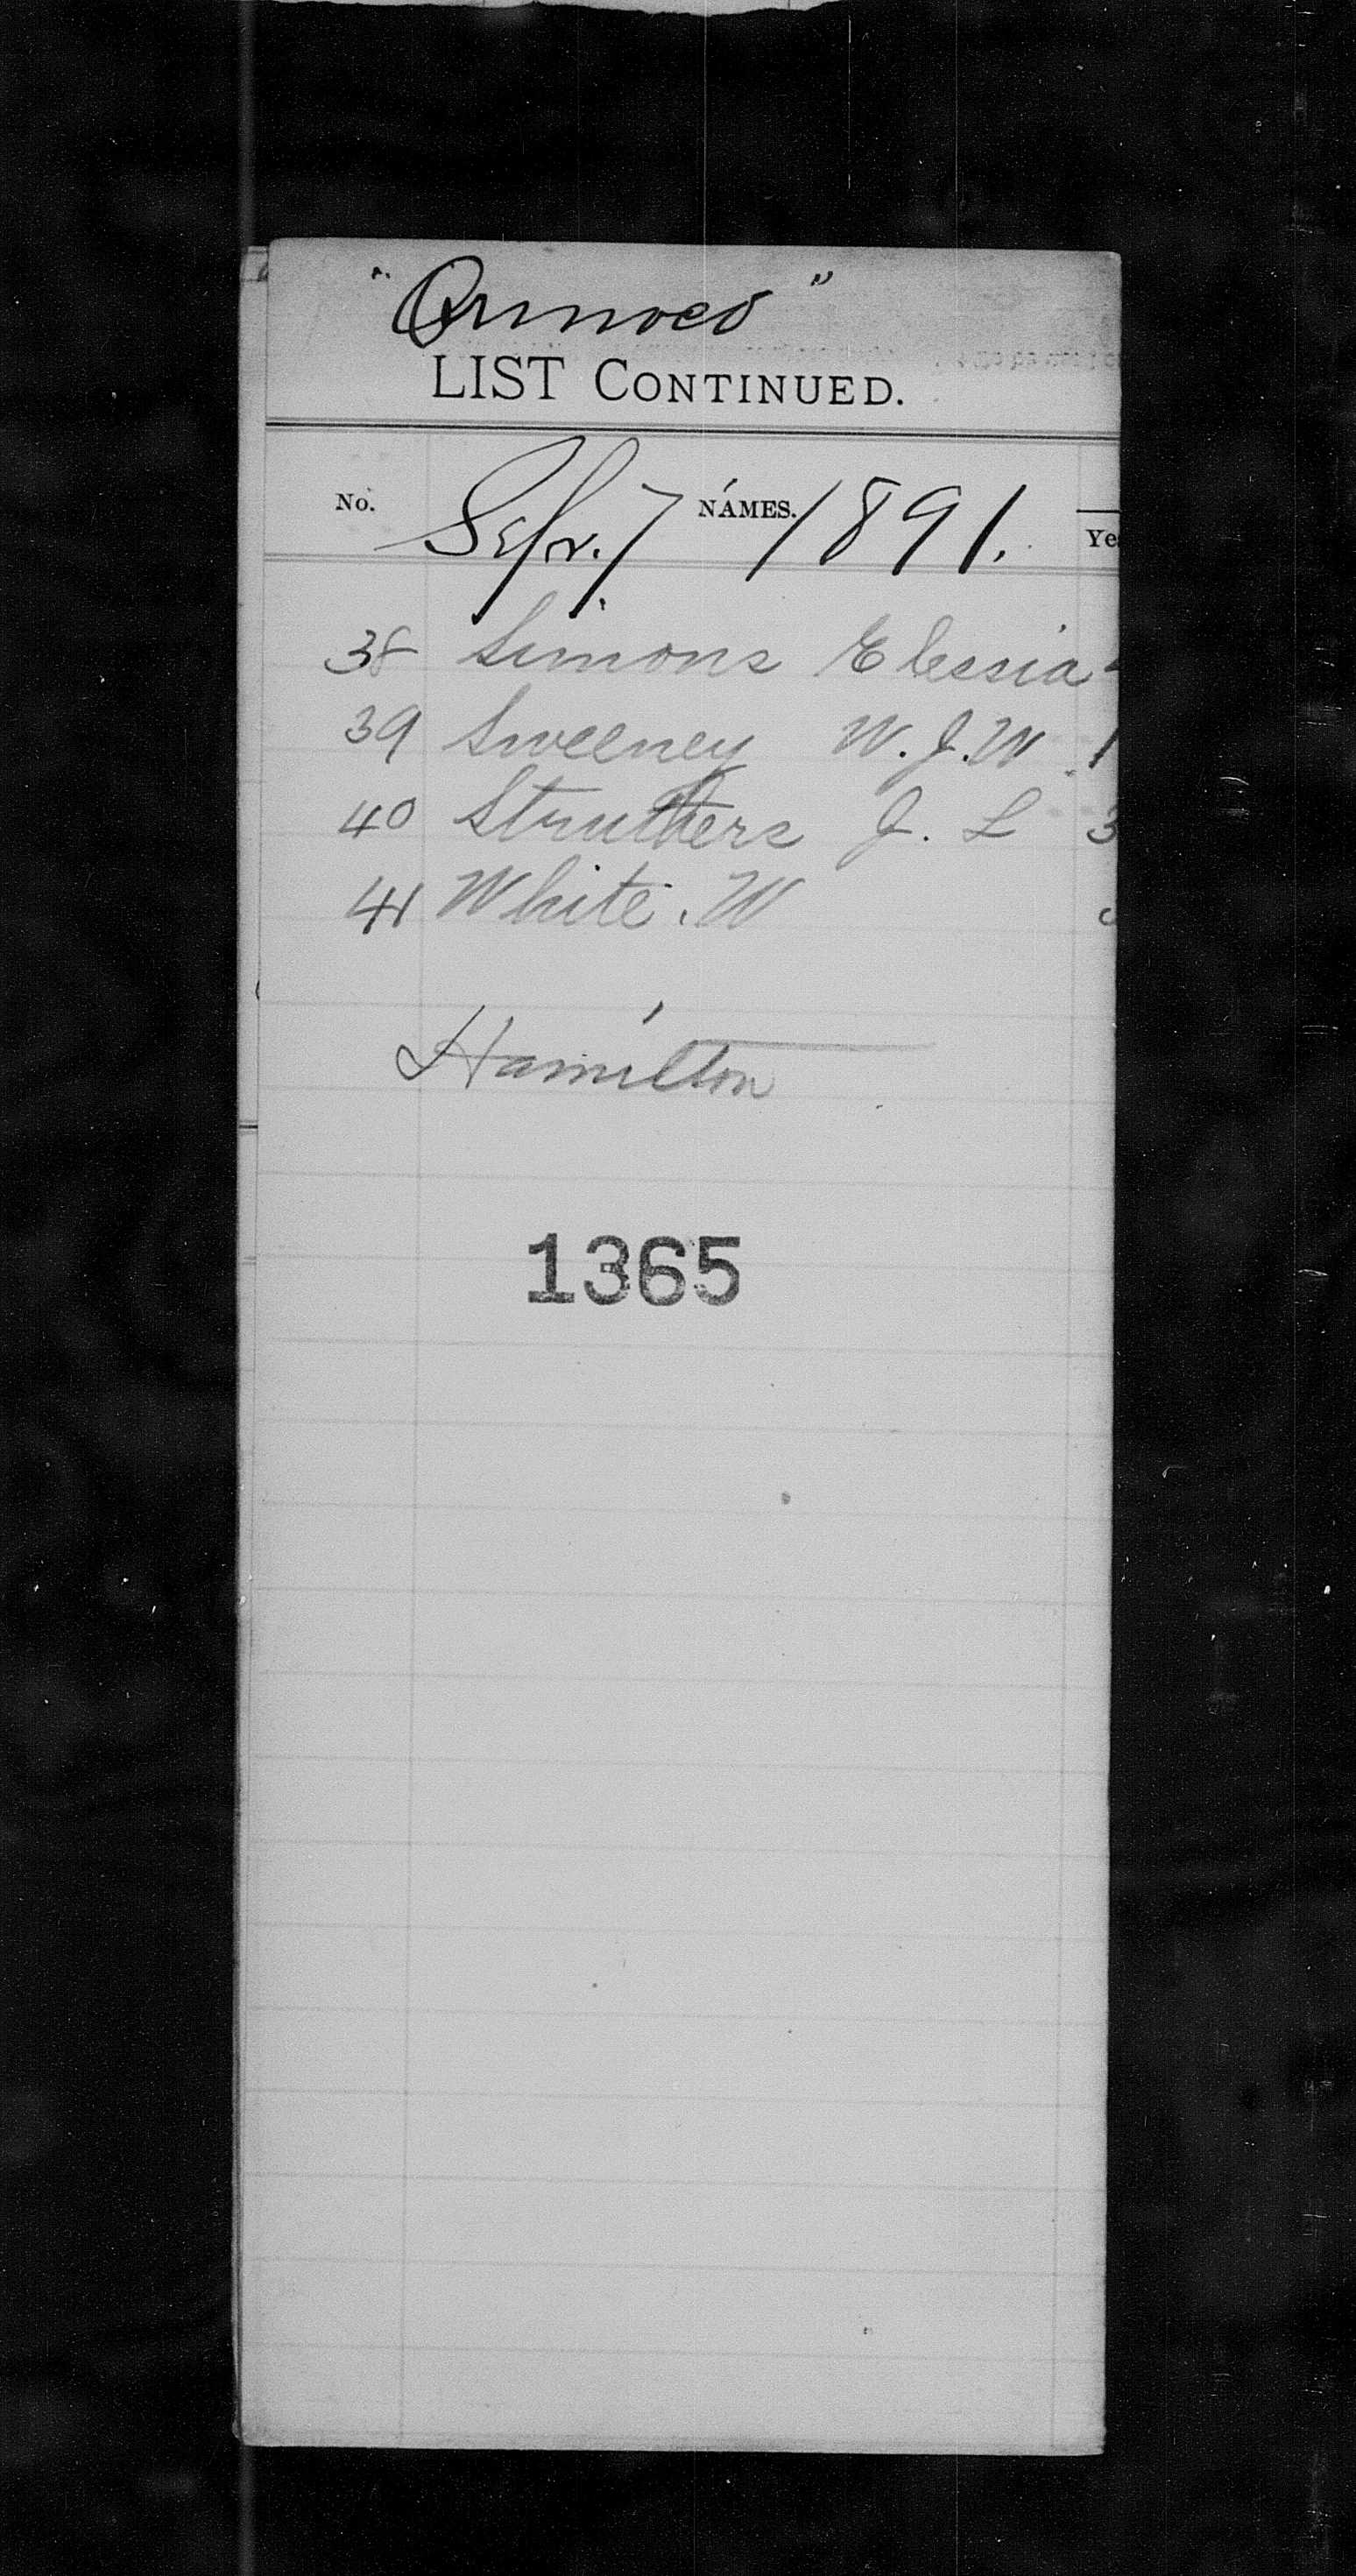 "Orinoco"
LIST CONTINUED.
No. NAMES. Ye
Sep. 7 1891.
38 Simons Elessia
39 Sweeney W. J. W 1
40 Struthers J. L 3
41 White. W
Hamilton
1365